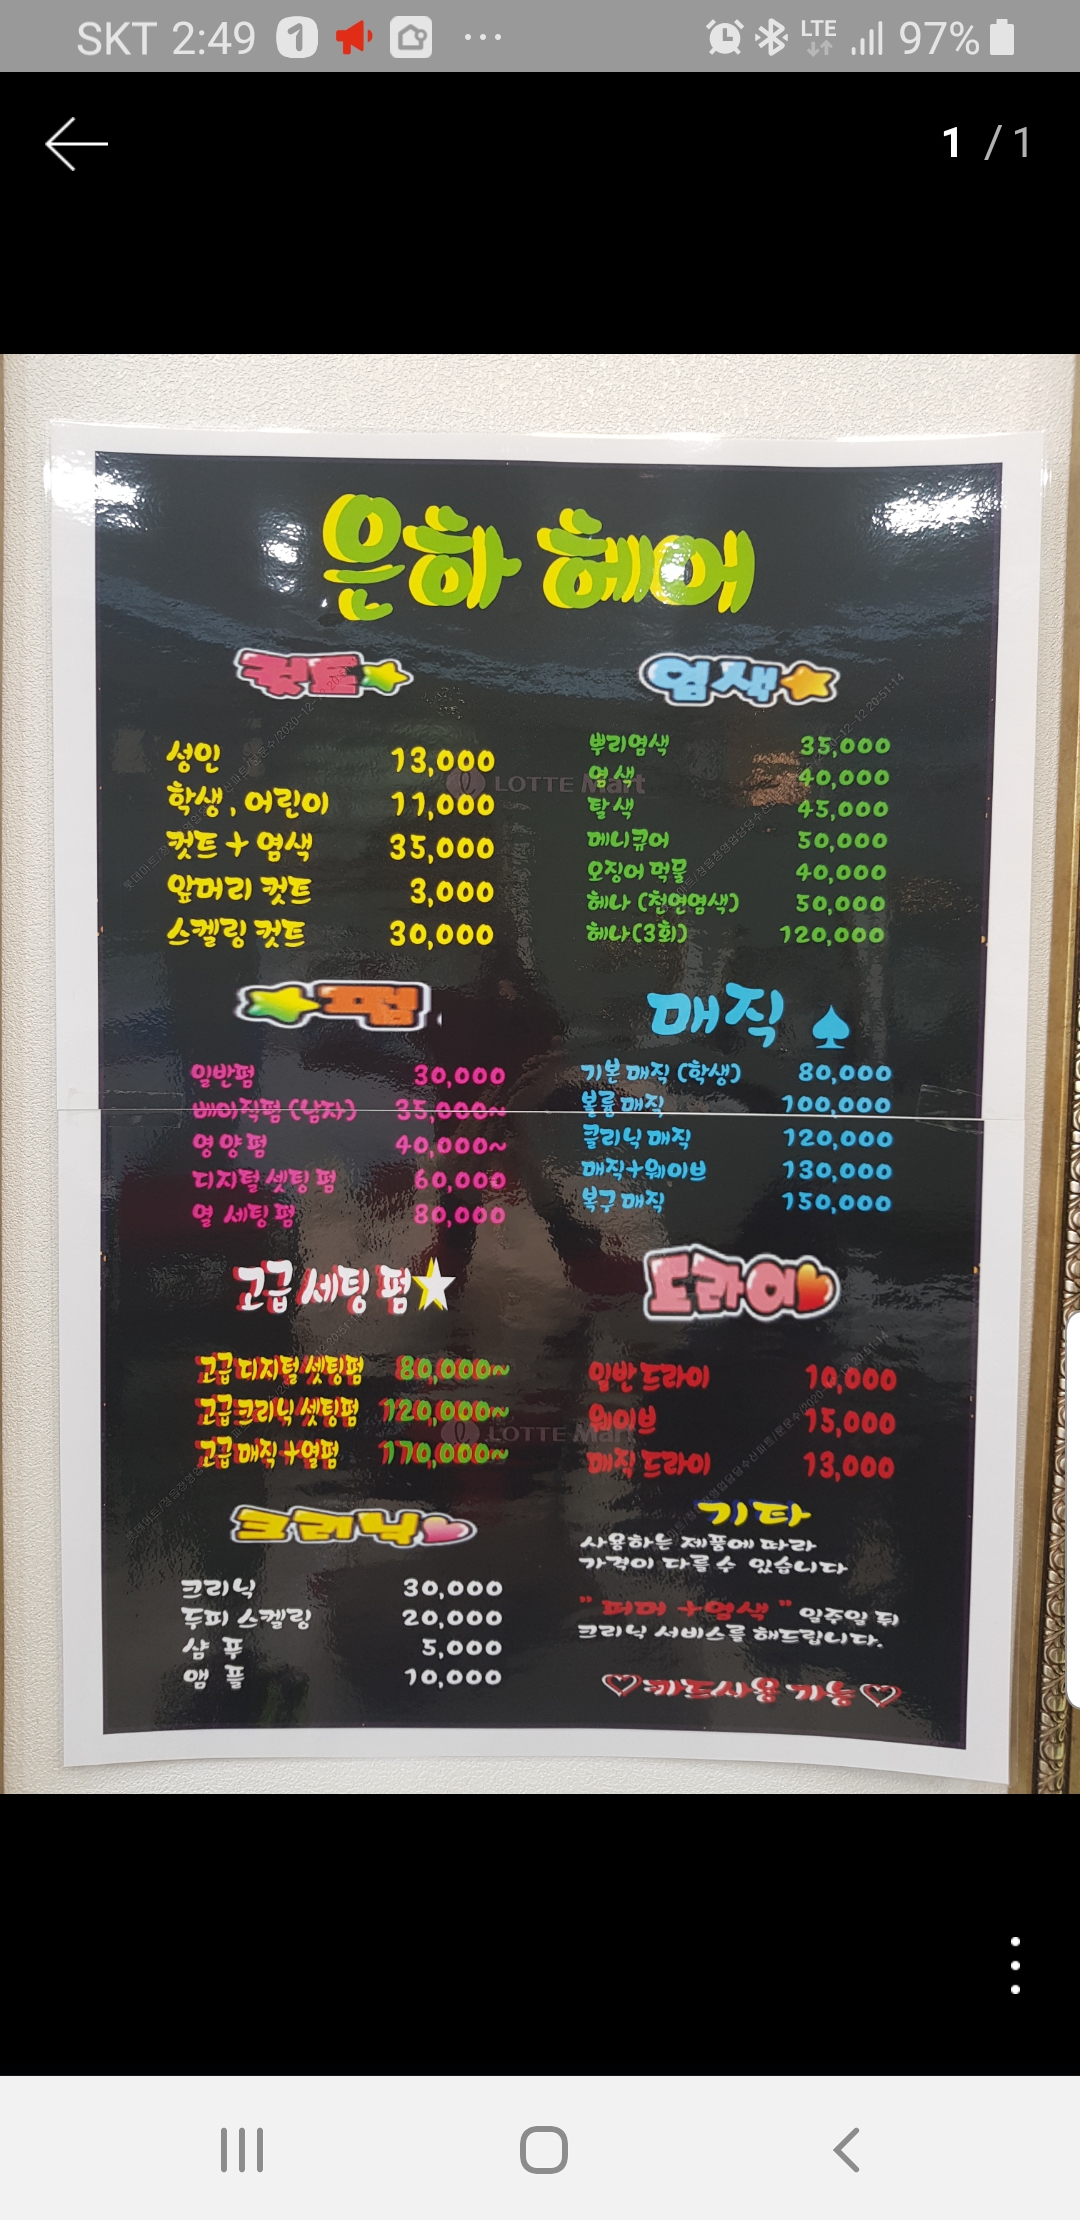 SKT 2:49
LTE
97%
1 / 1
은하 헤어
컷트
성인 13,000
학생, 어린이 11,000
컷트 + 염색 35,000
앞머리 컷트 3,000
스켈링 컷트 30,000
염색
뿌리염색 35,000
염색 40,000
탈색 45,000
메니큐어 50,000
오징어 먹물 40,000
헤나 (천연염색) 50,000
헤나(3회) 120,000
LOTTE Mart
펌
일반펌 30,000
베이직펌 (남자) 35,000~
영양펌 40,000~
디지털 셋팅 펌 60,000
열 세팅 펌 80,000
매직
기본 매직 (학생) 80,000
볼륨 매직 100,000
클리닉 매직 120,000
매직+웨이브 130,000
복구 매직 150,000
고급 세팅 펌
고급 디지털 셋팅펌 80,000~
고급 크리닉 셋팅펌 120,000~
고급 매직 +열펌 170,000~
드라이
일반 드라이 10,000
웨이브 15,000
매직 드라이 13,000
LOTTE Mart
크리닉
크리닉 30,000
두피 스켈링 20,000
샴 푸 5,000
앰 플 10,000
기타
사용하는 제품에 따라
가격이 다를 수 있습니다
" 퍼머 +염색 " 일주일 뒤
크리닉 서비스를 해드립니다.
카드사용 가능